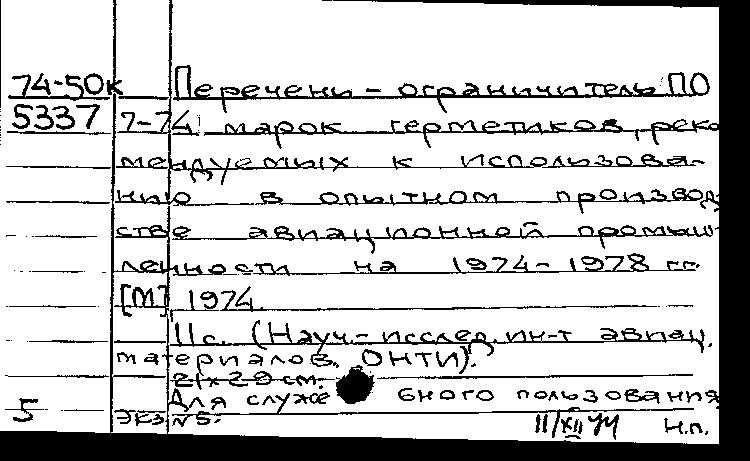 74-50к Перечень - ограничитель ПО
5337 7-74 марок герметиков, реко-
мендуемых к использова-
нию в опытном производ-
стве авиационной промыш-
ленности на 1974-1978 гг.
[М] 1974.
11с. (Науч.-исслед. ин-т авиац.
материалов. ОНТИ).
21х29 см.
Для служебного пользования
5 экз. № 5. 11/XII 74 Н.п.